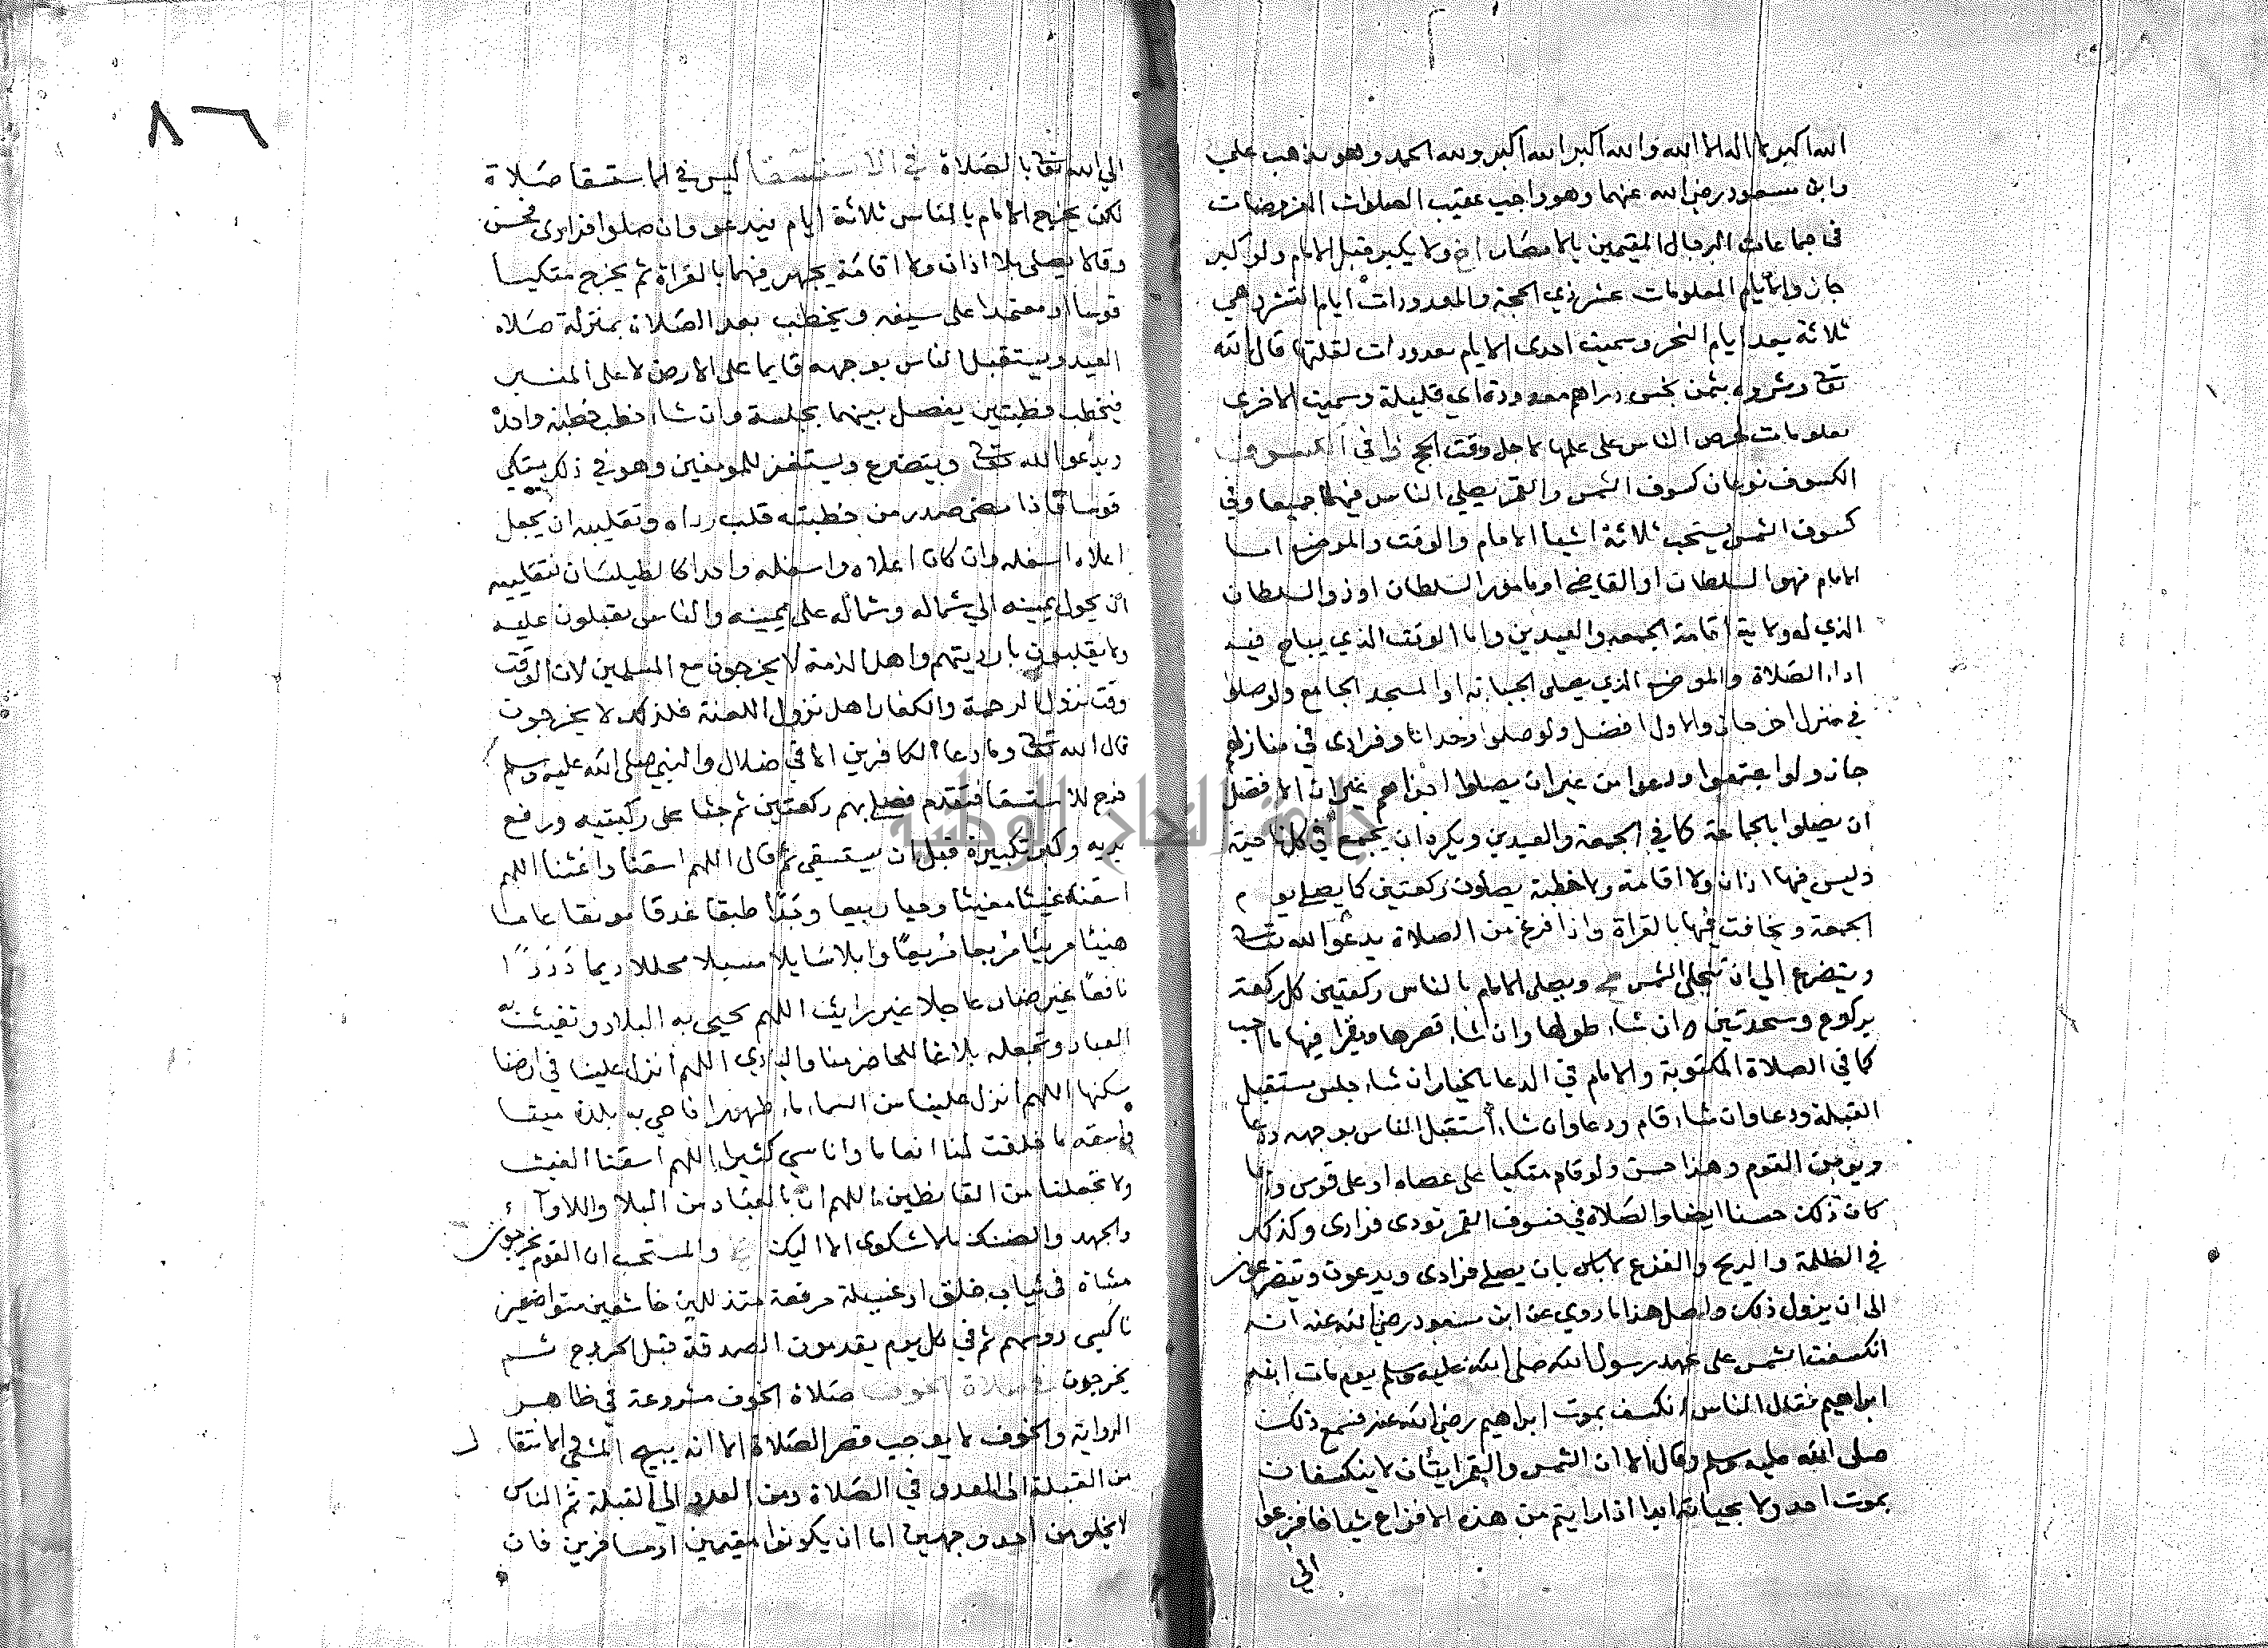 الله اكبر لا اله الا الله والله اكبر الله اكبر ولله الحمد وهو مذهب علي
وابن مسعود رضي الله عنهما وهو واجب عقيب الصلوات المفروضات
في جماعات الرجال المقيمين بالامصار ولا يكبر قبل الامام ولو كبر
جاز والايام المعلومات عشر ذي الحجة والمعدودات ايام التشريق هي
ثلاثة بعد ايام النحر وسميت احدى الايام معدودات لقلتها قال الله
تعالى وشروه بثمن بخس دراهم معدودة اي قليلة وسميت الاخرى
معلومات لحرص الناس على علمها لاجل وقت الحج في الكسوف
الكسوف نوعان كسوف الشمس والقمر يصلي الناس فيهما جميعا وفي
كسوف الشمس يستحب ثلاثة اشيا الامام والوقت والموضع اما
الامام فهو السلطان او القاضي او مامور السلطان او ذو السلطان
الذي له ولاية اقامة الجمعه والعيدين واما الوقت الذي يباح فيه
اداء الصلاة والموضع الذي يصلى الجبانه او المسجد الجامع ولو صلوا
في منزل اخر جاز والاول افضل ولو صلوا وحدانا وفرادى في منازلهم
جاز ولو اجتمعوا ودعوا من غير ان يصلوا اجزاهم غير ان الافضل
ان يصلوا بالجماعة كما في الجمعة والعيدين ويكره ان يجمع في كل ناحية
وليس فيها اذان ولا اقامة ولا خطبة يصلون ركعتين كما يصلي يوم
الجمعة ويخافت فيها بالقراة واذا فرغ من الصلاة يدعوا الله تعالى
ويتضرع الى ان تنجلي الشمس ويصلي الامام بالناس ركعتين كل ركعة
بركوع وسجدتين وان شاء طولها وان شاء قصرها ويقرا فيها ما احب
كما في الصلاة المكتوبة والامام في الدعا بالخيار ان شاء جلس مستقبل
القبلة ودعا وان شاء قام ودعا وان شاء استقبل الناس بوجهه ودعا
ويومن القوم وهذا حسن ولو قام متكيا على عصاه او على قوس ودعا
كان ذلك حسنا ايضا والصلاة في خسوف القمر تودى فرادى وكذلك
في الظلمة والريح والفزع لا باس بان يصلي فرادى ويدعون ويتضرعون
الى ان يزول ذلك واصل هذا ما روي عن ابن مسعود رضي الله عنه انه
انكسفت الشمس على عهد رسول الله صلى الله عليه وسلم يوم مات ابنه
ابراهيم فقال الناس انكسف بموت ابراهيم رضي الله عنه فسمع ذلك
صلى الله عليه وسلم وقال الا ان الشمس والقمر ايتان لا ينكسفان
بموت احد ولا بحياته ابدا اذا رايتم من هذه الافزاع شيا فافزعوا
الي
٨٦
الي الله تعالى بالصلاة في الاستسقا ليس في الاستسقا صلاة
لكن يخرج الامام بالناس ثلاثة ايام فيدعو وان صلوا فرادى فحسن
وقالا يصلي بلا اذان ولا اقامة يجهر فيهما بالقراة ثم يخرج متكيا
قوسا او معتمدا على سيفه ويخطب بعد الصلاة بمنزلة صلاة
العيد ويستقبل الناس بوجهه قايما على الارض لا على المنبر
فيخطب خطبتين يفصل بينهما بجلسة وان شاء خطب خطبة واحدة
ويدعوا الله تعالى ويتضرع ويستغفر للمومنين وهو في ذلك يتكي
قوسا فاذا مضى صدر من خطبته قلب رداه وتقليبه ان يجعل
اعلاه اسفله وان كان اعلاه واسفله واحدا كالطيلسان فتقليبه
ان يحول يمينه الي شماله وشماله على يمينه والناس يقبلون عليه
ولا يقلبون بارديتهم واهل الذمة لا يخرجون مع المسلمين لان الوقت
وقت نزول الرحمة والكفار اهل نزول اللعنة فلذلك لا يخرجون
قال الله تعالى وما دعا الكافرين الا في ضلال والنبي صلى الله عليه وسلم
خرج للاستسقا فتقدم فصلي بهم ركعتين ثم جثا على ركبتيه ورفع
يديه وكبر تكبيرة قبل ان يستسقي ثم قال اللهم اسقنا واغثنا اللهم
اسقنا غيثا مغيثا وحيا ربيعا وجدا طبقا غدقا مونقا عاما
هنيئا مريئا مريعا مربعا وابلا سايلا مسبلا مجللا ديما دررا
نافعا غير ضار عاجلا غير رايث اللهم تحيي به البلاد وتغيث به
العباد وتجعله بلاغا للحاضر منا والبادي اللهم انزل علينا في ارضنا
سكنها اللهم انزل علينا من السماء ماء طهورا فاحي به بلدة ميتا
واسقه ما خلقت لنا انعاما واناسي كثيرا اللهم اسقنا الغيث
ولا تجعلنا من القانطين اللهم ان بالعباد من البلا واللاوآء
والجهد والضنك ما لا شكوى الا اليك والمستحب ان القوم يخرجون
مشاة في ثياب خلق او غسيلة مرقعة متذللين خاشعين متواضعين
ناكسي روسهم ثم في كل يوم يقدمون الصدقة قبل الخروج ثم
يخرجون في صلاة الخوف صلاة الخوف مشروعة في ظاهر
الرواية والخوف لا يوجب قصر الصلاة الا انه يبيح المشي والانتقال
من القبلة الى العدو في الصلاة ومن العدو الي القبلة ثم الناس
لا يخلو من احد وجهين اما ان يكونوا مقيمين او مسافرين فان
جامعة النجاح الوطنية